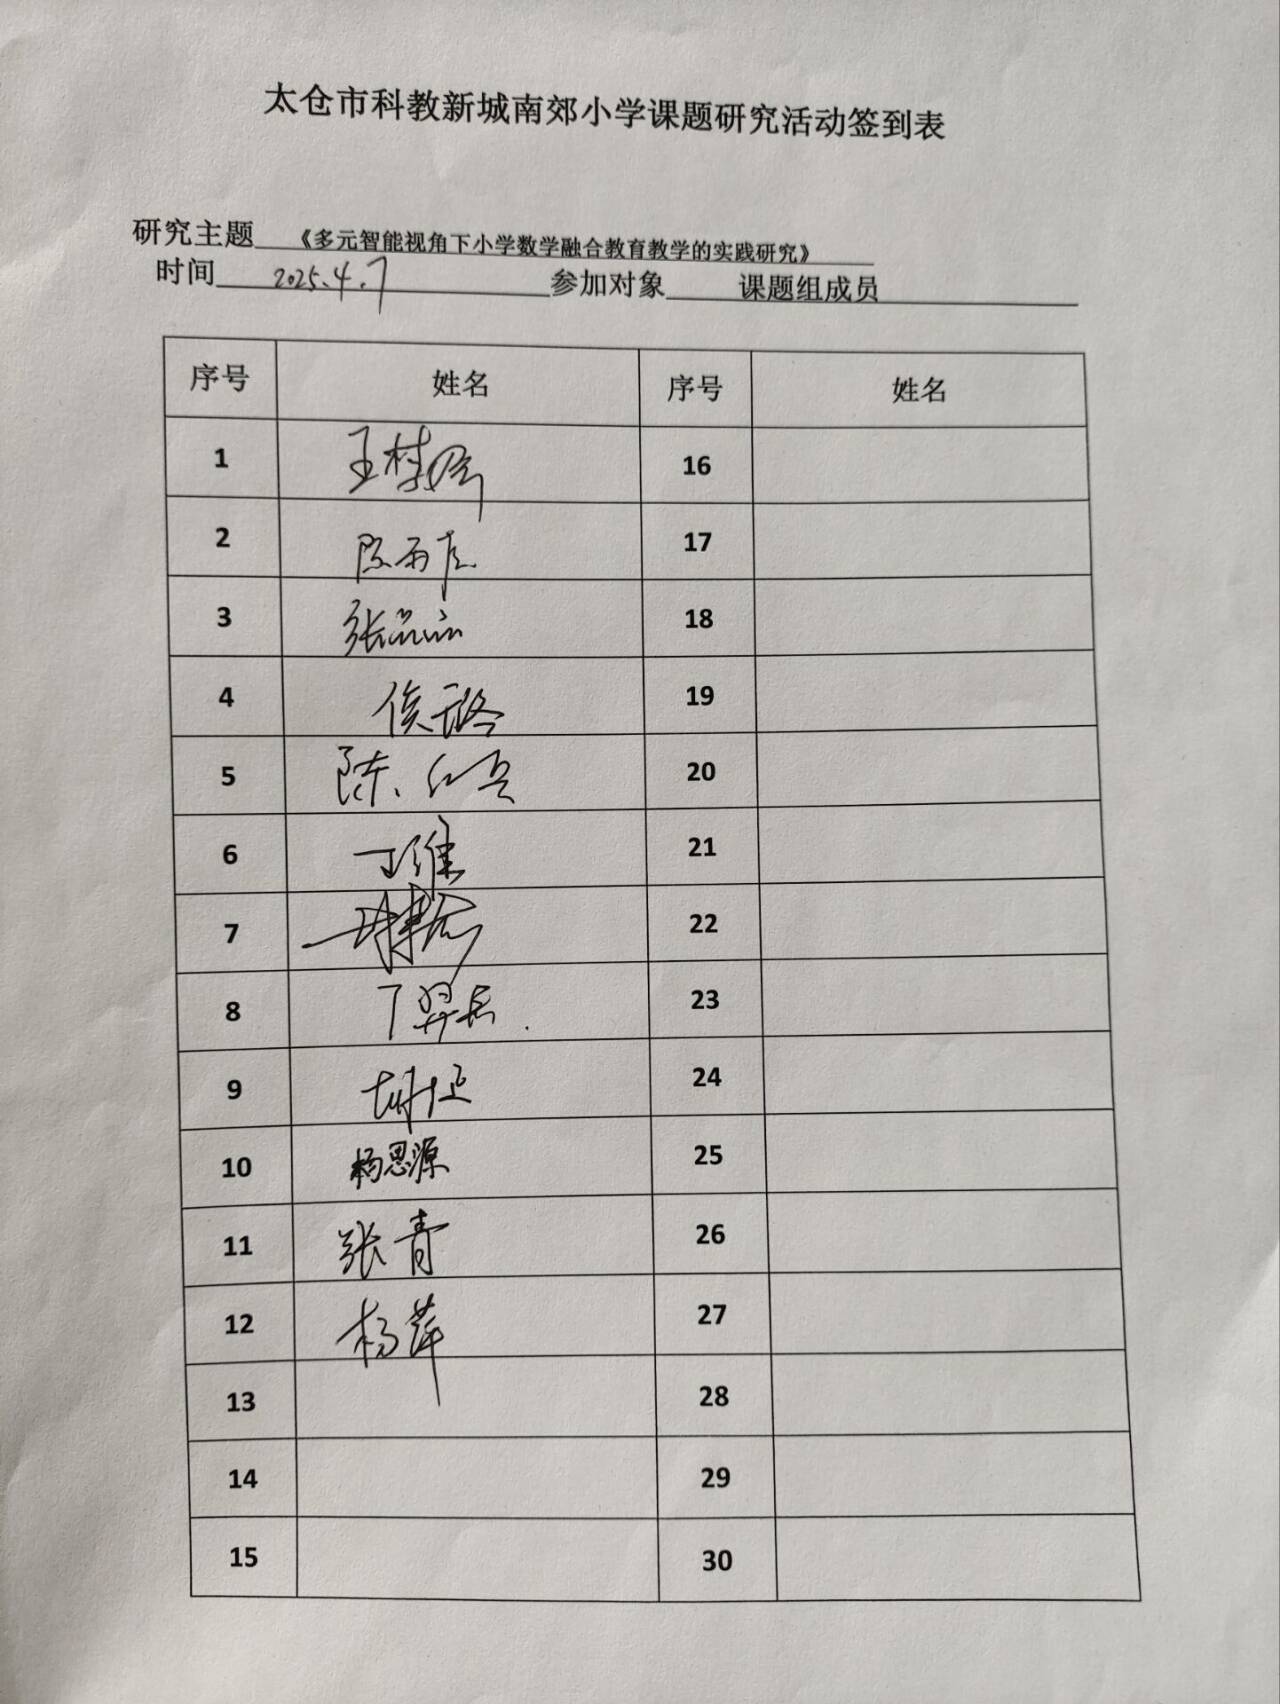 太仓市科教新城南郊小学课题研究活动签到表
研究主题 《多元智能视角下小学数学融合教育教学的实践研究》
时间 2025.4.7 参加对象 课题组成员
序号 姓名 序号 姓名
1 王 16
2 陈雨 17
3 张 18
4 侯 19
5 陈 20
6 丁维 21
7 22
8 丁羿 23
9 胡 24
10 杨思源 25
11 张青 26
12 杨萍 27
13 28
14 29
15 30